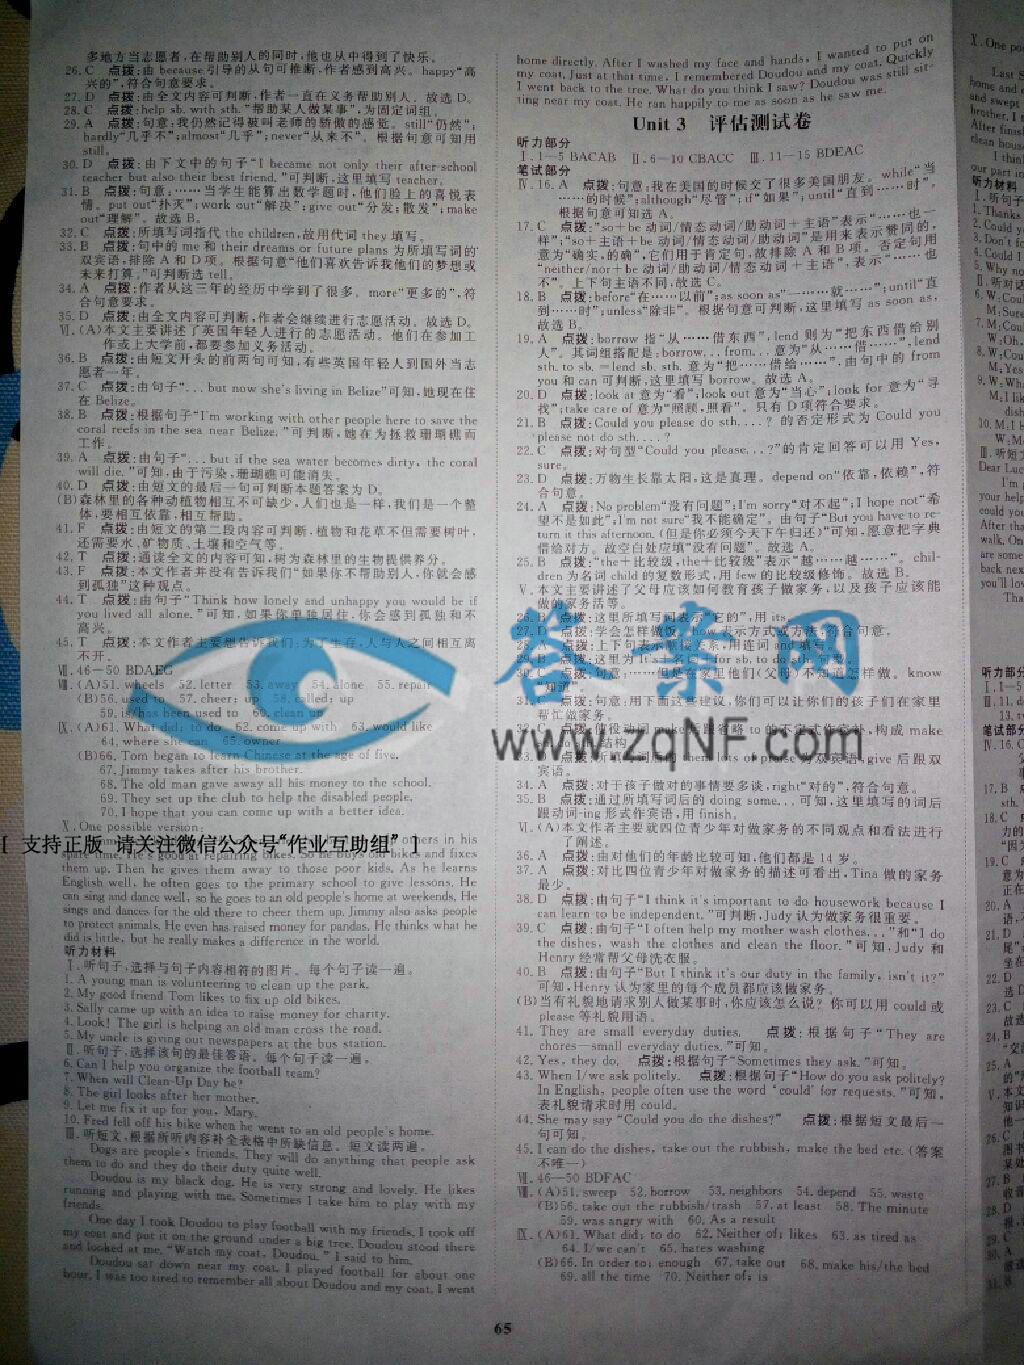 多地方当志愿者,在帮助别人的同时,他也从中得到了快乐。
26. C 点拨:由 because 引导的从句可推断,作者感到高兴。happy“高
兴的”,符合句意要求。
27. D 点拨:由全文内容可判断,作者一直在义务帮助别人。故选 D。
28. C 点拨:help sb. with sth.“帮助某人做某事”,为固定词组。
29. A 点拨:句意:我仍然记得被叫老师的骄傲的感觉。still“仍然”;
hardly“几乎不”;almost“几乎”;never“从来不”。根据句意可知用
still。
30. D 点拨:由下文中的句子“I became not only their after-school
teacher but also their best friend.”可判断,这里填写 teacher。
31. B 点拨:句意:……当学生能算出数学题时,他们脸上的喜悦表
情。put out“扑灭”;work out“解决”;give out“分发;散发”;make
out“理解”。故选 B。
32. C 点拨:所填写词指代 the children,故用代词 they 填写。
33. B 点拨:句中的 me 和 their dreams or future plans 为所填写词的
双宾语,排除 A 和 D 项。根据句意“他们喜欢告诉我他们的梦想或
未来打算。”可判断选 tell。
34. A 点拨:作者从这三年的经历中学到了很多。more“更多的”,符
合句意要求。
35. D 点拨:由全文内容可判断,作者会继续进行志愿活动。故选 D。
Ⅵ. (A)本文主要讲述了英国年轻人进行的志愿活动。他们在参加工
作或上大学前,都要参加义务活动。
36. B 点拨:由短文开头的前两句可知,有些英国年轻人到国外当志
愿者一年。
37. C 点拨:由句子“... but now she's living in Belize”可知,她现在住
在 Belize。
38. B 点拨:根据句子“I'm working with other people here to save the
coral reefs in the sea near Belize.”可判断,她在为拯救珊瑚礁而
工作。
39. A 点拨:由句子“... but if the sea water becomes dirty, the coral
will die.”可知,由于污染,珊瑚礁可能消失。
40. D 点拨:由短文的最后一句可判断本题答案为 D。
(B)森林里的各种动植物相互不可缺少。人们也是一样,我们是一个整
体,要相互依靠,相互帮助。
41. F 点拨:由短文的第二段内容可判断,植物和花草不但需要树叶,
还需要水、矿物质、土壤和空气等。
42. T 点拨:通读全文的内容可知,树为森林里的生物提供养分。
43. F 点拨:本文作者并没有告诉我们“如果你不帮助别人,你就会感
到孤独”这种观点。
44. T 点拨:由句子“Think how lonely and unhappy you would be if
you lived all alone.”可知,如果你单独居住,你会感到孤独和不
高兴。
45. T 点拨:本文作者主要想告诉我们:为了生存,人与人之间相互离
不开。
Ⅶ. 46—50 BDAEG
Ⅷ. (A)51. wheels 52. letter 53. away 54. alone 55. repair
(B)56. used to 57. cheer; up 58. called; up
59. is/has been used to 60. clean up
Ⅸ. (A)61. What did; to do 62. come up with 63. would like
64. where she can 65. owner
(B)66. Tom began to learn Chinese at the age of five.
67. Jimmy takes after his brother.
68. The old man gave away all his money to the school.
69. They set up the club to help the disabled people.
70. I hope that you can come up with a better idea.
Ⅹ. One possible version:
[ 支持正版 请关注微信公众号“作业互助组” ]
others in his
spare time. He likes repairing bikes. So he buys old bikes and fixes
them up. Then he gives them away to those poor kids. As he learns
English well, he often goes to the primary school to give lessons. He
can sing and dance well, so he goes to an old people's home at weekends. He
sings and dances for the old there to cheer them up. Jimmy also asks people
to protect animals. He even has raised money for pandas. He thinks what he
did is little, but he really makes a difference in the world.
听力材料
Ⅰ. 听句子,选择与句子内容相符的图片。每个句子读一遍。
1. A young man is volunteering to clean up the park.
2. My good friend Tom likes to fix up old bikes.
3. Sally came up with an idea to raise money for charity.
4. Look! The girl is helping an old man cross the road.
5. My uncle is giving out newspapers at the bus station.
Ⅱ. 听句子,选择该句的最佳答语。每个句子读一遍。
6. Can I help you organize the football team?
7. When will Clean-Up Day be?
8. The girl looks after her mother.
9. Let me fix it up for you, Mary.
10. Fred fell off his bike when he went to an old people's home.
Ⅲ. 听短文,根据所听内容补全表格中所缺信息。短文读两遍。
Dogs are people's friends. They will do anything that people ask
them to do and they do their duty quite well.
Doudou is my black dog. He is very strong and lovely. He likes
running and playing with me. Sometimes I take him to play with my
friends.
One day I took Doudou to play football with my friends. I took off
my coat and put it on the ground under a big tree. Doudou stood there
and looked at me. “Watch my coat, Doudou.” I said to him.
Doudou sat down near my coat. I played football for about one
hour. I was too tired to remember all about Doudou and my coat. I went
home directly. After I washed my face and hands, I wanted to put on
my coat. Just at that time, I remembered Doudou and my coat. Quickly
I went back to the tree. What do you think I saw? Doudou was still sit-
ting near my coat. He ran happily to me as soon as he saw me.
Unit 3 评估测试卷
听力部分
Ⅰ. 1—5 BACAB Ⅱ. 6—10 CBACC Ⅲ. 11—15 BDEAC
笔试部分
Ⅳ. 16. A 点拨:句意:我在美国的时候交了很多美国朋友。while“当
……的时候”;although“尽管”;if“如果”;until“直到……时”。
根据句意可知选 A。
17. C 点拨:“so+be 动词/情态动词/助动词+主语”表示“……也一
样”;“so+主语+be 动词/情态动词/助动词”是用来表示赞同的,
意为“确实,的确”,它们用于肯定句,故排除 A 和 B 项。否定句用
“neither/nor+be 动词/助动词/情态动词+主语”,表示“……也
不”。上下句主语不同,故选 C。
18. B 点拨:before“在……以前”;as soon as“一……就……”;until“直
到……时”;unless“除非”。根据句意可判断,这里填写 as soon as,
故选 B。
19. A 点拨:borrow 指“从……借东西”,lend 则为“把东西借给别
人”。其词组搭配是:borrow... from... 意为“从……借……”,lend
sth. to sb. =lend sb. sth. 意为“把……借给……”,由句中的 from
you 和 can 可判断,这里填写 borrow。故选 A。
20. D 点拨:look at 意为“看”;look out 意为“当心”;look for 意为“寻
找”;take care of 意为“照顾,照看”。只有 D 项符合要求。
21. B 点拨:Could you please do sth....? 的否定形式为 Could you
please not do sth....?
22. C 点拨:对句型“Could you please...?”的肯定回答可以用 Yes,
sure。
23. D 点拨:万物生长靠太阳,这是真理。depend on“依靠,依赖”,符
合句意。
24. A 点拨:No problem“没有问题”;I'm sorry“对不起”;I hope not“希
望不是如此”;I'm not sure“我不能确定”。由句子“But you have to re-
turn it this afternoon.(但是你必须今天下午归还)”可知,愿意把字典
借给对方。故空白处应填“没有问题”。故选 A。
25. B 点拨:“the+比较级,the+比较级”表示“越……越……”。chil-
dren 为名词 child 的复数形式,用 few 的比较级修饰。故选 B。
Ⅴ. 本文主要讲述了父母应该如何教育孩子做家务,以及孩子应该能
做的家务活等。
26. B 点拨:这里所填写词表示“它的”,用 its。
27. D 点拨:学会怎样做饭。how 表示方式或方法,符合句意。
28. A 点拨:上下句表示顺接关系,用连词 and 填写。
29. B 点拨:这里为 It's+名词+for sb. to do sth. 句型。
30. 句意:……但是在家里他们(父母)不知道怎样做。know
“知道”。
31. 句意:用下面这些建议,你们可以让你们的孩子们在家里
帮忙做家务。
32. C 点拨:使役动词 make 后跟省略 to 的不定式作宾补,构成 make
结构。
33. them lots of praise 为双宾语,give 后跟双
宾语。
34. A 点拨:对于孩子做对的事情要多谈,right“对的”,符合句意。
35. B 点拨:通过所填写词后的 doing some... 可知,这里填写的词后
跟动词-ing 形式作宾语,用 finish。
Ⅵ. (A)本文作者主要就四位青少年对做家务的不同观点和看法进行
了阐述。
36. A 点拨:由对他们的年龄比较可知,他们都是 14 岁。
37. A 点拨:对比四位青少年对做家务的描述可看出,Tina 做的家务
最少。
38. D 点拨:由句子“I think it's important to do housework because I
can learn to be independent.”可判断,Judy 认为做家务很重要。
39. C 点拨:由句子“I often help my mother wash clothes...”和“I do
the dishes, wash the clothes and clean the floor.”可知,Judy 和
Henry 经常帮父母洗衣服。
40. B 点拨:由句子“But I think it's our duty in the family, isn't it?”
可知,Henry 认为家里的每个成员都应该做家务。
(B)当有礼貌地请求别人做某事时,你应该怎么说?你可以用 could 或
please 等礼貌用语。
41. They are small everyday duties. 点拨:根据句子“They are
chores—small everyday duties.”可知。
42. Yes, they do. 点拨:根据句子“Sometimes they ask.”可知。
43. When I/we ask politely. 点拨:根据句子“How do you ask politely?
In English, people often use the word 'could' for requests.”可知。
表礼貌请求时用 could。
44. She may say “Could you do the dishes?” 点拨:根据短文最后一
句可知。
45. I can do the dishes, take out the rubbish, make the bed etc. (答案
不唯一)
Ⅶ. 46—50 BDFAC
Ⅷ. (A)51. sweep 52. borrow 53. neighbors 54. depend 55. waste
(B)56. take out the rubbish/trash 57. at least 58. The minute
59. was angry with 60. As a result
Ⅸ. (A)61. What did; to do 62. Neither of; likes 63. as tired as
64. I/we can't 65. hates washing
(B)66. In order to; enough 67. take out 68. make his/the bed
69. all the time 70. Neither of; is
65
答案网
www.zqNF.com